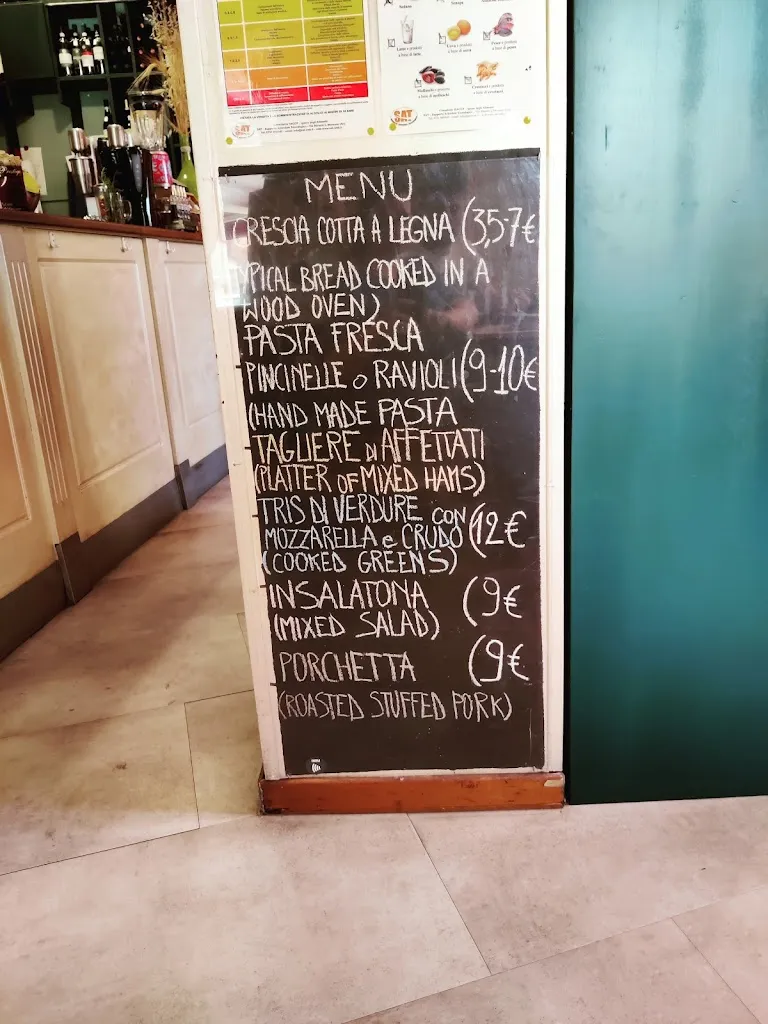 SAT
SAT
MENU
CRESCIA COTTA A LEGNA (3,5-7€
TYPICAL BREAD COOKED IN A
WOOD OVEN)
PASTA FRESCA
PINCINELLE O RAVIOLI (9-10€
(HAND MADE PASTA
TAGLIERE DI AFFETTATI
(PLATTER OF MIXED HAMS)
TRIS DI VERDURE CON
MOZZARELLA e CRUDO (12€
(COOKED GREENS)
INSALATONA (9€
(MIXED SALAD)
PORCHETTA (9€
(ROASTED STUFFED PORK)